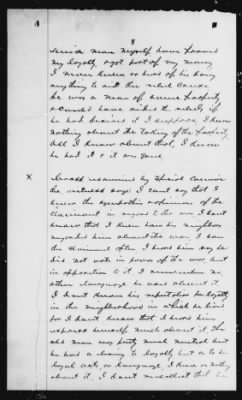 4
service man myself have proved
my loyalty & got part of my money
I never knew or heard of his doing
anything to aid the rebel cause
he was a man of some property
& could have aided the rebels if
he had desired it I suppose I know
nothing about the taking of the property
all I know about that, I know
he had it & it was gone,
X
Cross examined by Special Commr
the witness says I can't say that I
knew the sympathies & opinions of the
Claimant in regard to the war I don't
know that I knew how his neighbors
regarded him about the war I saw
the claimant often I heard him say he
did not vote in favor of the war, but
in opposition to it I remember no
other language he used about it
I don't know his reputation for loyalty
in the neighborhood in which he lived
for I don't know that I heard him
express himself much about it the
old man was pretty much neutral but
he had a leaning to loyalty but as to his
loyal acts, or language I know or nothing
about it, I don't recollect that he